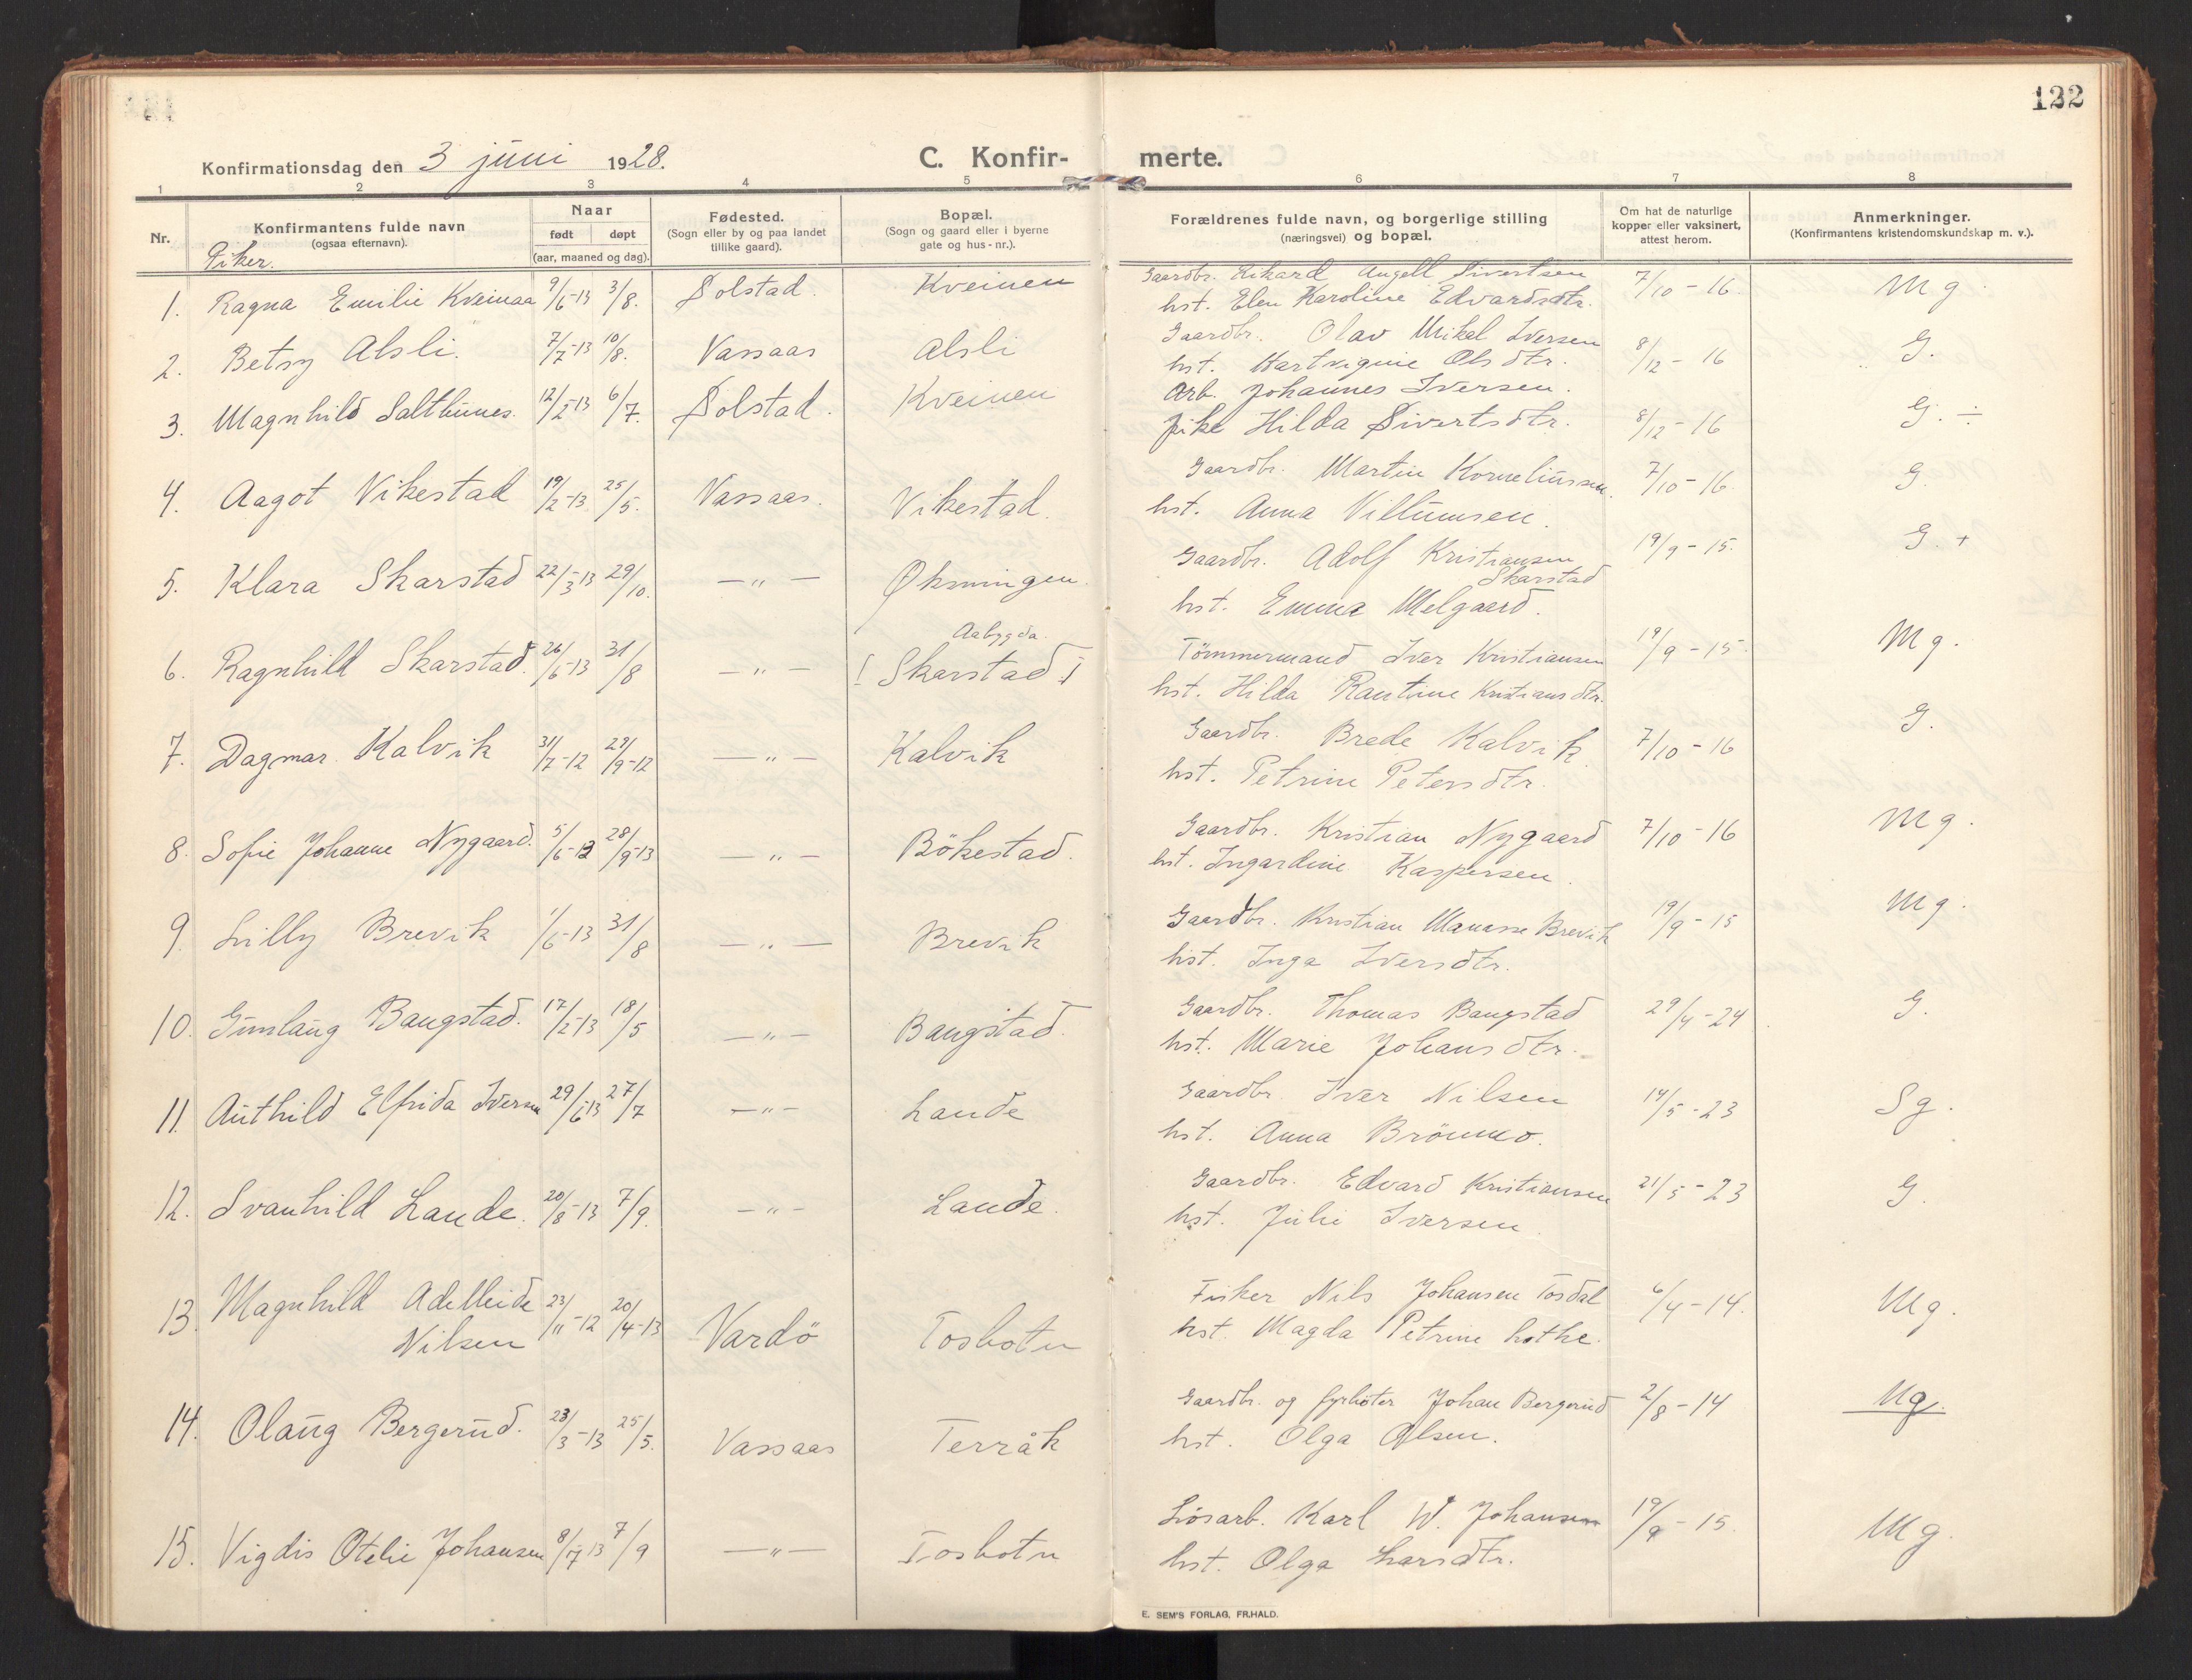 122
Konfirmationsdag den 3 juni 1928.
C. Konfir- merte.
1 2 3 4 5 6 7 8
Nr.
Konfirmantens fulde navn
(ogsaa efternavn).
Piker.
Naar
født døpt
(aar, maaned og dag).
Fødested.
(Sogn eller by og paa landet
tillike gaard).
Bopæl.
(Sogn og gaard eller i byerne
gate og hus-nr.).
Forældrenes fulde navn, og borgerlige stilling
(næringsvei) og bopæl.
Om hat de naturlige
kopper eller vaksinert,
attest herom.
Anmerkninger.
(Konfirmantens kristendomskundskap m. v.).
1. Ragna Emilie Kveinaa 9/6-13 3/8. Dolstad. Kveinen Gaardbr. Rikard Angell Sivertsen 7/10-16. Mg.
hst. Elen Karoline Edvardsdtr.
2. Betsy Alsli. 7/7-13 10/8. Vassaas Alsli Gaardbr. Olav Mikal Iversen 8/12-16 G.
hst. Hartvigine Olsdtr.
3. Magnhild Saltbunes. 12/2-13 6/7. Dolstad. Kveinen Arb. Johannes Iversen. 8/12-16 G. ÷
Pike Hilda Sivertsdtr.
4. Aagot Vikestad 19/2-13. 25/5. Vassaas. Vikestad. Gaardbr. Martin Korneliussen. 7/10-16. G.
hst. Anna Villumsen.
5. Klara Skarstad 22/3-13 29/10. —„— Øksningen. Gaardbr. Adolf Kristiansen 19/9-15. G. +
Skarstad
hst. Emma Melgaard.
Aabygda.
6. Ragnhild Skarstad. 26/6-13 31/8 —„— Skarstad Tömmermand Iver Kristiansen 19/9-15. Mg.
hst. Hilda Rantine Kristiansdtr.
7. Dagmar. Kalvik 31/7-12 29/9-12 —„— Kalvik Gaardbr. Brede Kalvik. 7/10-16 G.
hst. Petrine Petersdtr.
8. Sofie Johanne Nygaard. 5/6-13 28/9-13 —„— Bökestad. Gaardbr. Kristian Nygaard 7/10-16 Mg.
hst. Ingardine Kaspersen.
9. Lilly Brevik 1/6-13 31/8 —„— Brevik Gaardbr. Kristian Manasse Brevik 19/9-15 Mg.
hst. Inga Iversdtr.
10. Gunlaug Bangstad. 17/2-13 18/5 —„— Bangstad. Gaardbr. Thomas Bangstad 29/4-24 G.
hst. Marie Johansdtr.
11. Authild Elfrida Iversen 29/6-13 27/7 —„— Lande Gaardbr. Iver Nilsen 14/5-23 Sg.
hst. Anna Brönmo.
12. Svanhild Lande. 20/8-13 7/9. —„— Lande. Gaardbr. Edvard Kristiansen 21/5-23 G.
hst. Julie Iversen.
13. Magnhild Adelleide 23/11-12 20/4-13 Vardö Tosbotn Fisker Nils Johansen Tosdal 6/4-14. Mg.
Nilsen hst. Magda Petrine Lothe.
14. Olaug Bergerud. 23/3-13 25/5. Vassaas Terråk Gaardbr. og fyrböter Johan Bergerud 2/8-14 Mg.
hst. Olga Olsen.
15. Vigdis Otelie Johansen 8/7-13 7/9 —„— Tosbotn Lösarb. Karl W. Johansen 19/9-15. Mg.
hst. Olga Larsdtr.
E. SEM'S FORLAG, FR.HALD.